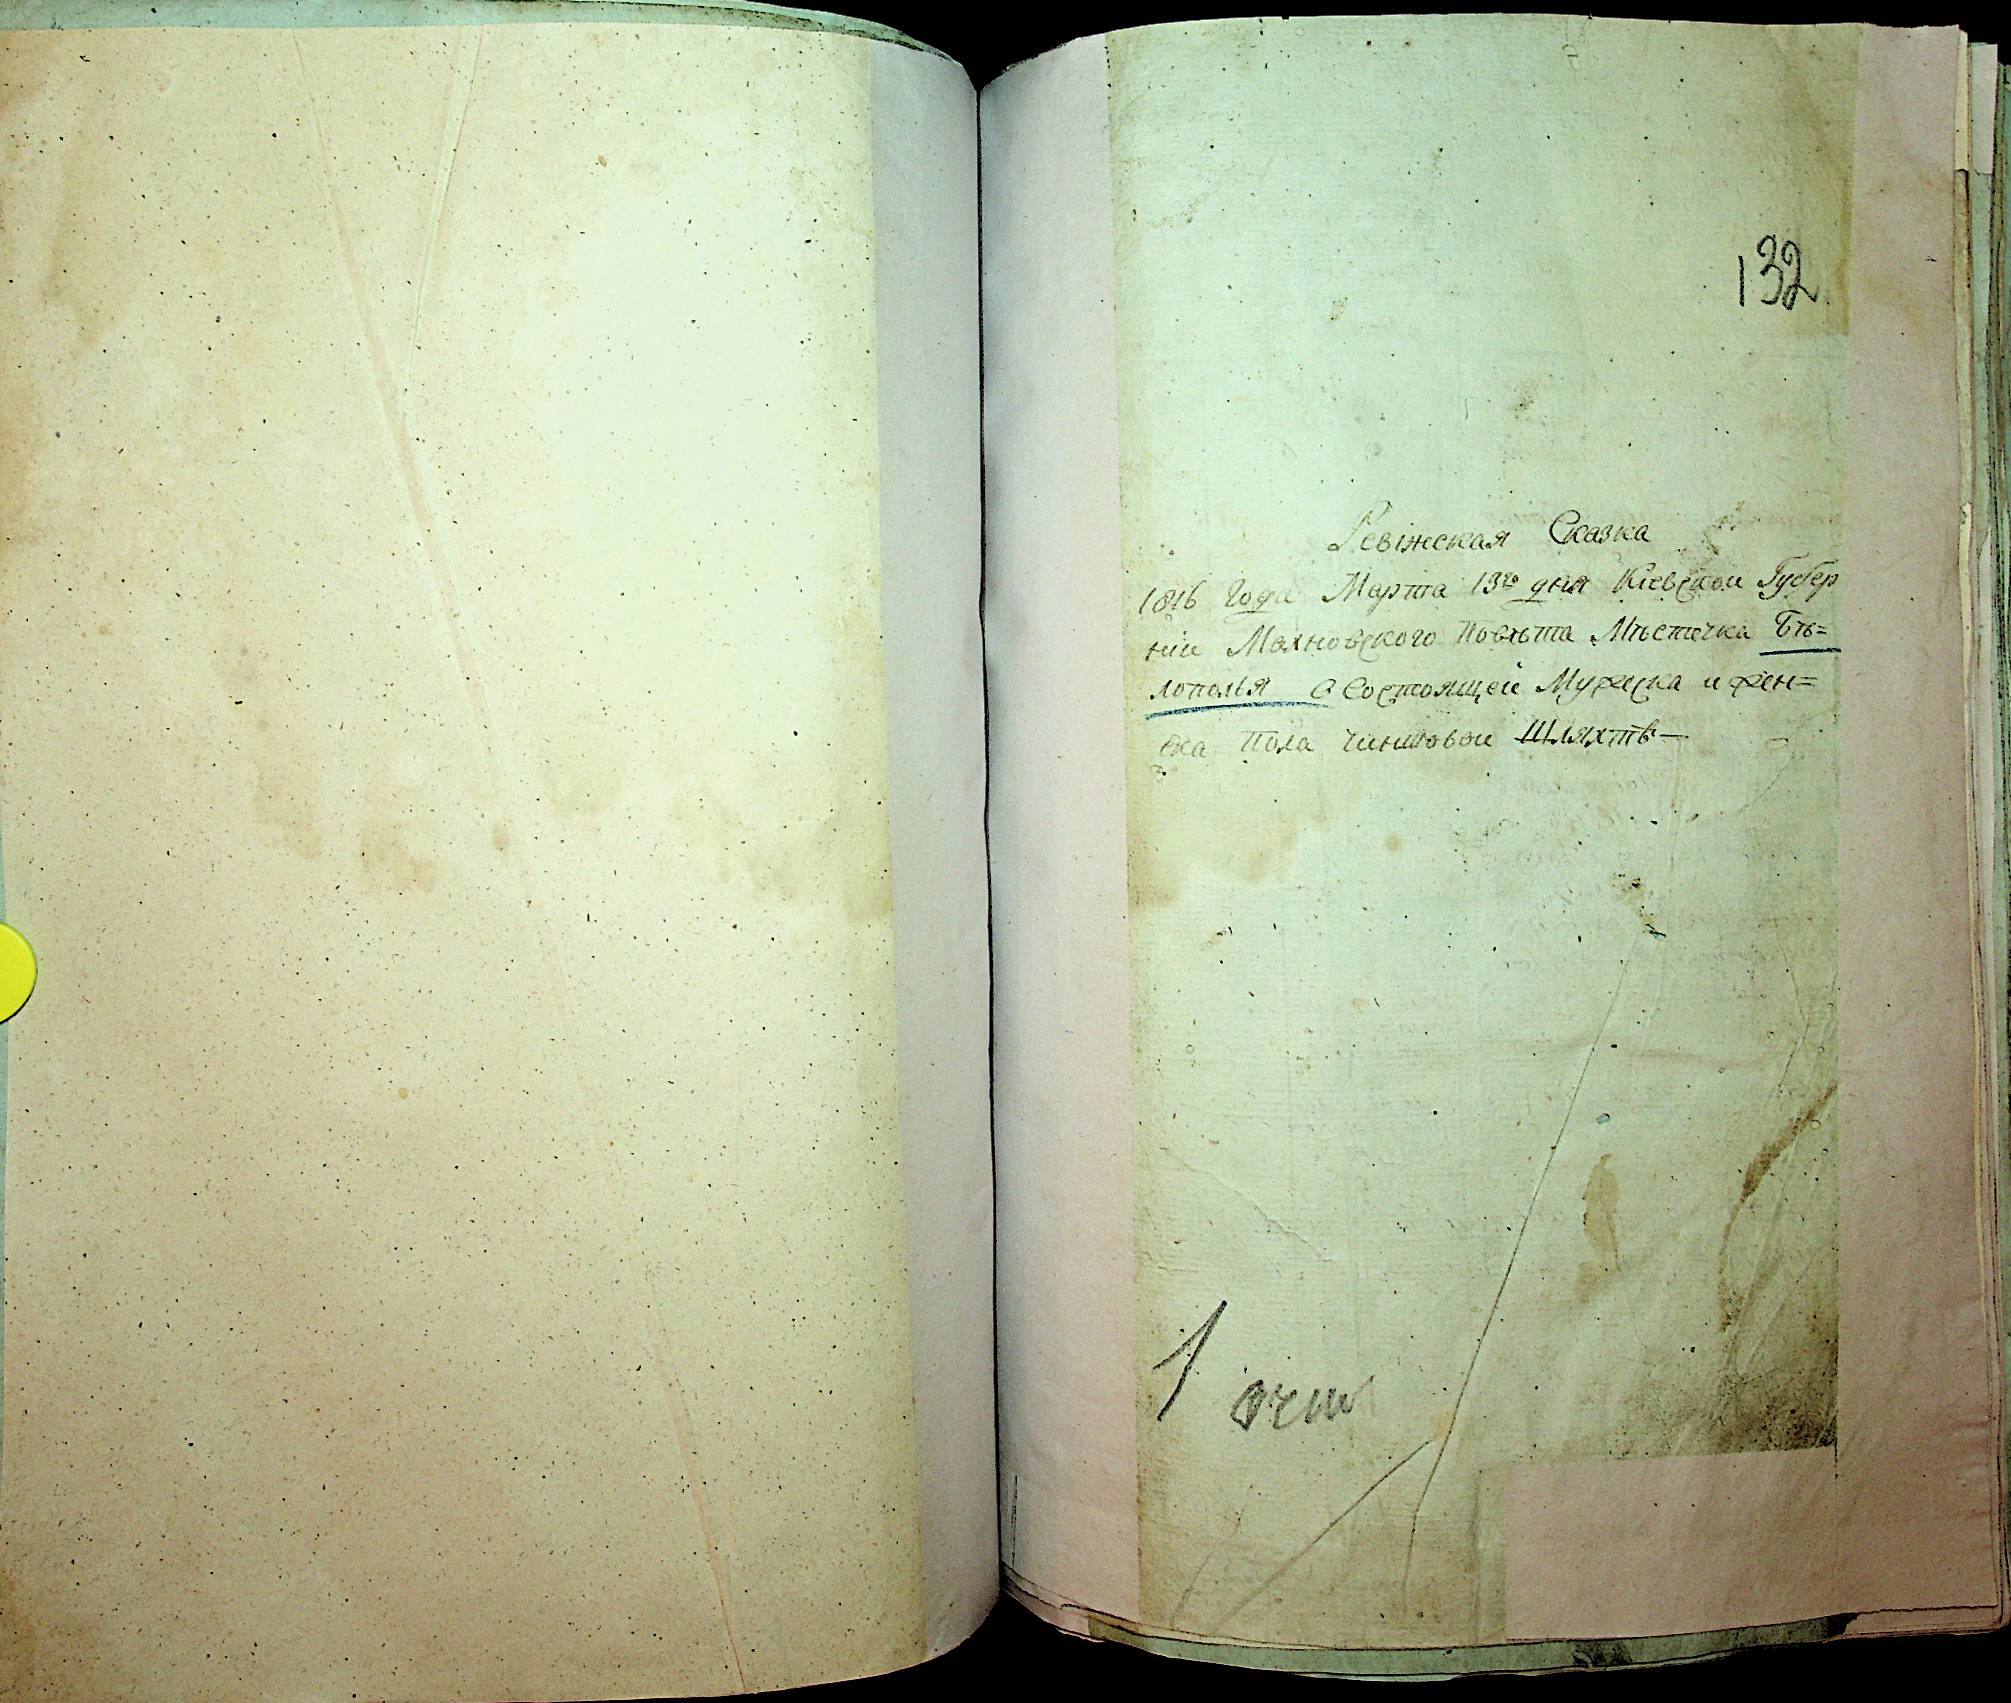 132
Ревіжская Сказка
1816 Года Марта 13го дня Кіевской Губер
ніи Махновского Повѣта Мѣстечка Бѣ=
лополья О Состоящей Мужеска и жен=
ска Пола Чиншовой Шляхтѣ—
1